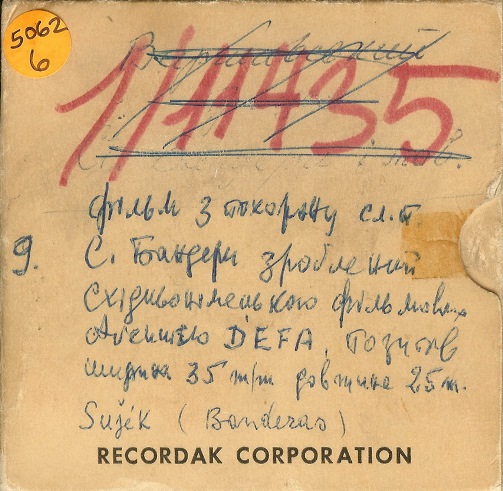 5062
6
1/11435
фільм з похорону сл.п.
9. С. Бандери зроблений
східньонімецькою фільмовою
агенцією DEFA, позитив
ширина 35 m/m довжина 25 m.
Sužék (Banderas)
RECORDAK CORPORATION